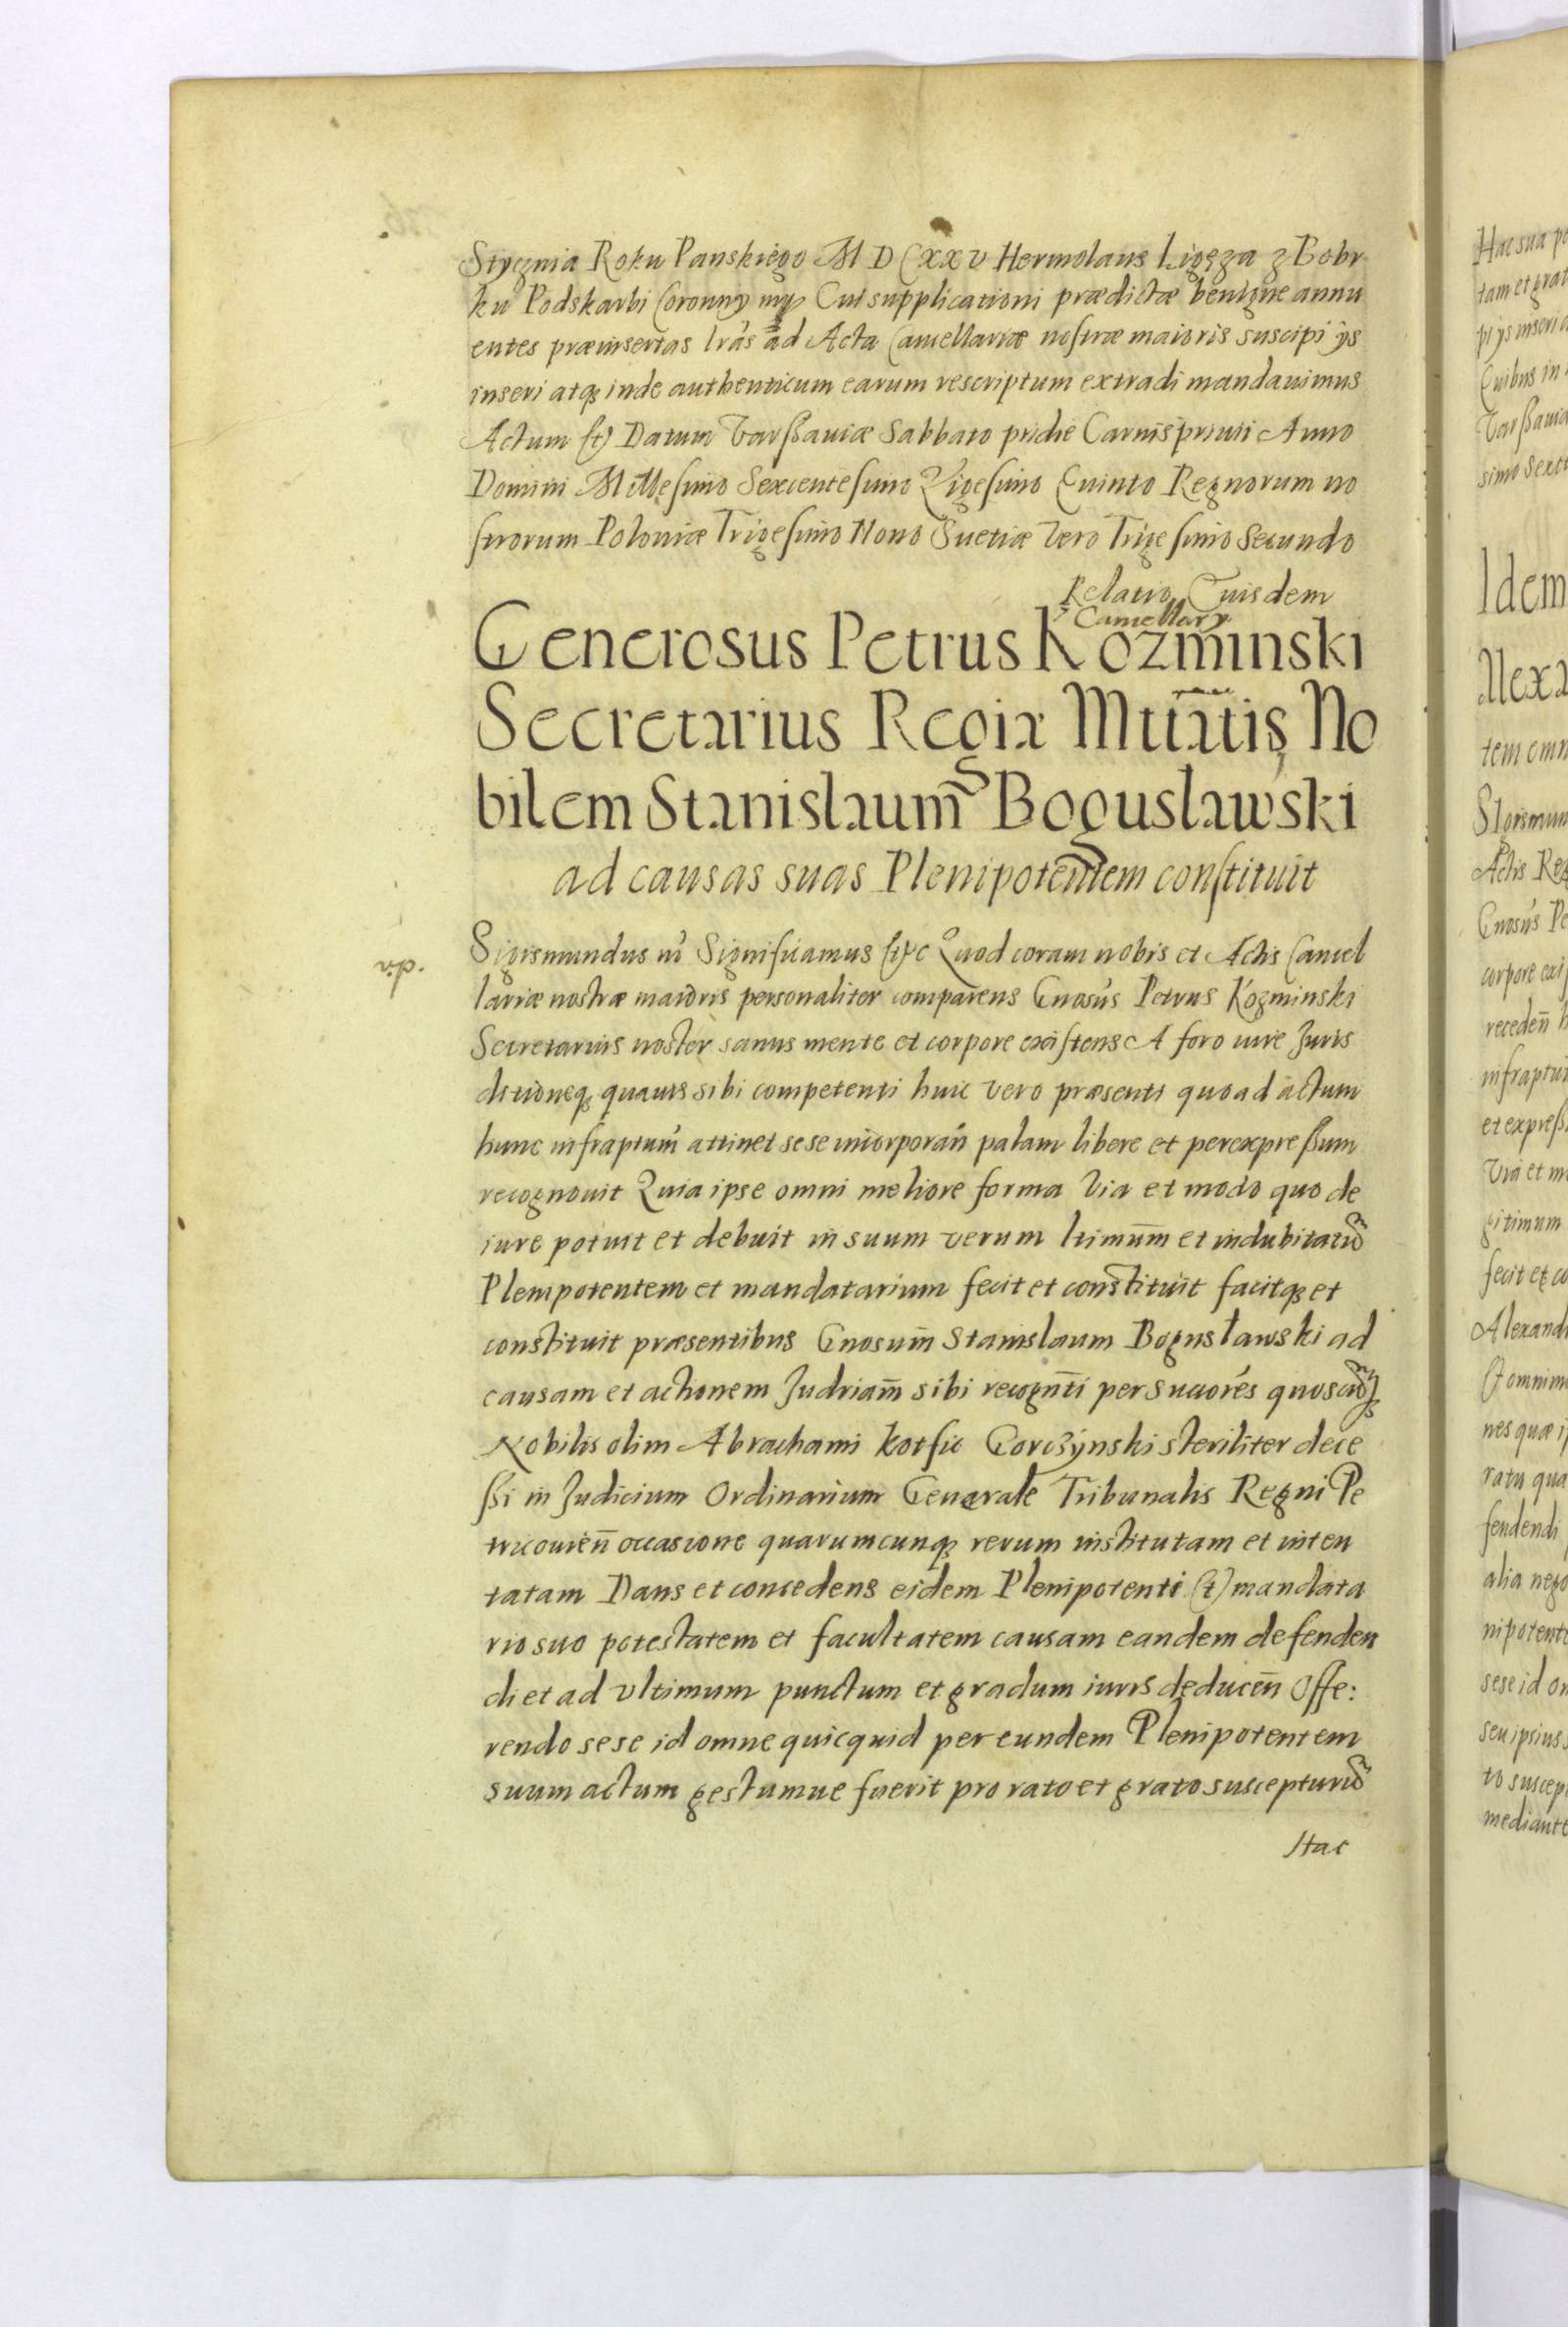 Stycznia Roku Panskiego M D C xx v Hermolaus Ligęza z Bobr
ku Podskarbi Coronny mp Cui supplicationi prædictæ benigne annu
entes præinsertas lrás ad Acta Cancellariæ nostræ maioris suscipi ijs
inseri atq inde authenticum earum rescriptum extradi mandauimus
Actum et Datum Varssauiæ Sabbato pridie Carnispriuii Anno
Domini Millesimo Sexcentesimo Vigesimo Quinto Regnorum no
strorum Poloniæ Trigesimo Nono Suetiæ vero Trigesimo Secundo
Relatio Eiusdem
Cancellary
Generosus Petrus Kozminski
Secretarius Regiæ Mttatis No
bilem Stanislaum Boguslawski
ad causas suas Plenipotentem constituit
Sigismundus III Significamus etc Quod coram nobis et Actis Cancel
lariæ nostræ maioris personaliter comparens Gnosús Petrus Kozminski
Secretarius noster sanus mente et corpore existens A foro iure Juris
ditioneq quauis sibi competenti huic vero præsenti quoad actum
hunc infraptum attinet sese incorporań palam libere et perexpressum
recognouit Quia ipse omni meliore forma via et modo quo de
iure potuit et debuit in suum verum ltimum̄ et indubitatū
Plenipotentem et mandatarium fecit et constituit facitq et
constituit præsentibus Gnosum̄ Stanislaum Bogusławski ad
causam et actionem Judriam̄ sibi recogn̄ti per Succorés quoscūq
Nobilis olim Abrachami kotsic Gorczýnski steriliter dece
ssi in Judicium Ordinarium Generale Tribunalis Regni Pe
tricouien̄ occasione quarumcunq rerum institutam et inten
tatam Dans et concedens eidem Plenipotenti et mandata
rio suo potestatem et facultatem causam eandem defenden
di et ad vltimum punctum et gradum iuris deducen̄ Offe:
rendo sese id omne quicquid per eundem Plenipotentem
suum actum gestumue fuerit pro rato et grato suscepturū
Hac